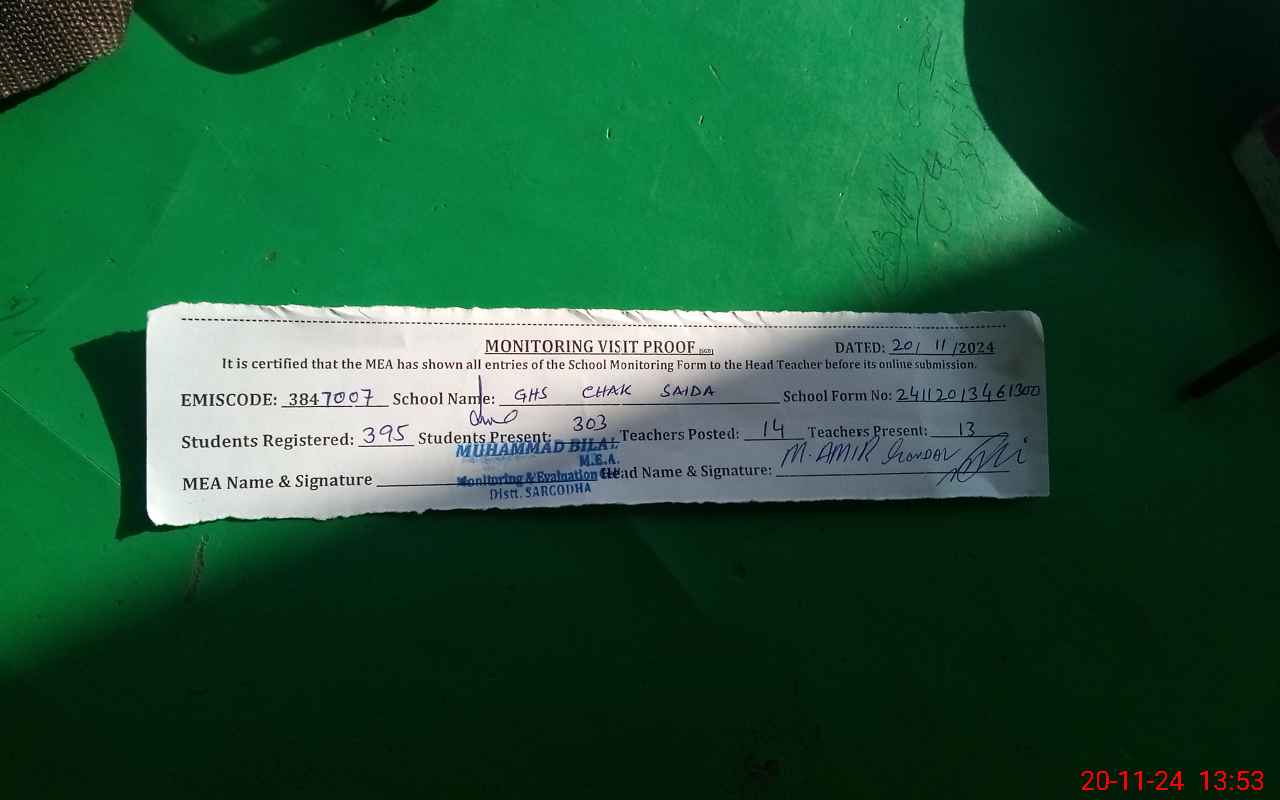 MONITORING VISIT PROOF DATED: 20/ 11 /2024
It is certified that the MEA has shown all entries of the School Monitoring Form to the Head Teacher before its online submission.
EMISCODE: 3847007 School Name: GHS CHAK SAIDA School Form No: 24112013461300
Students Registered: 395 Students Present: 303 Teachers Posted: 14 Teachers Present: 13
MEA Name & Signature Head Name & Signature: M. AMIR
MUHAMMAD BILAL
M.E.A.
Monitoring & Evaluation
Distt. SARGODHA
20-11-24 13:53